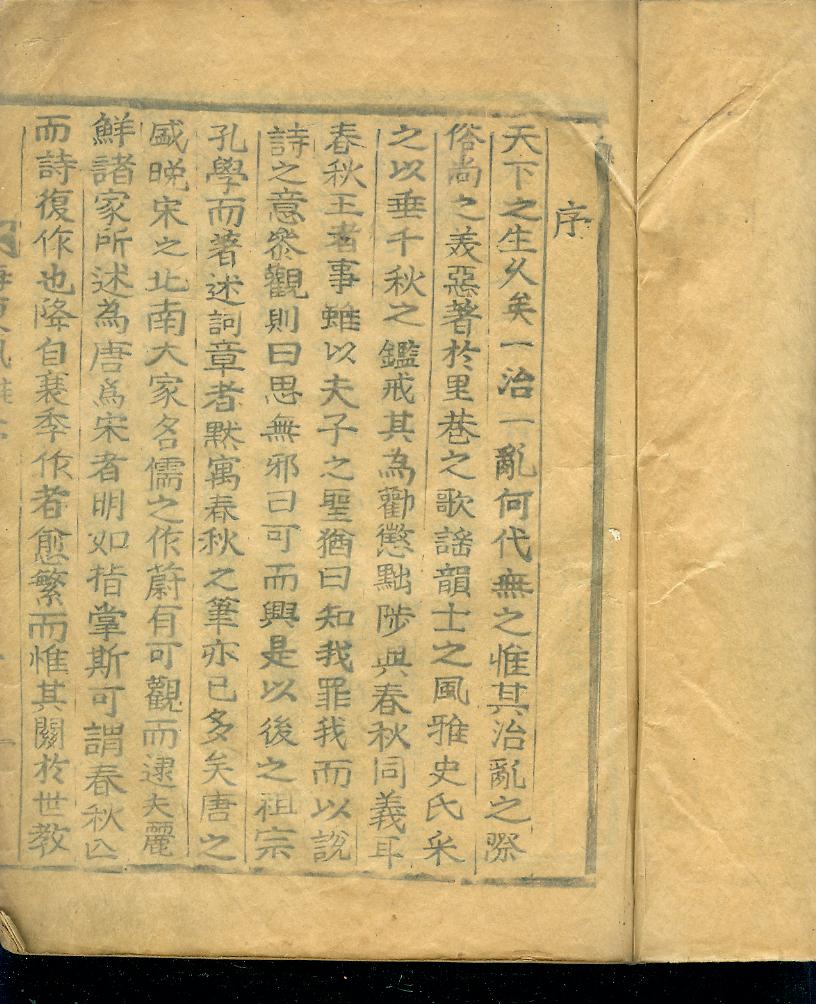 序
天下之生久矣一治一亂何代無之惟其治亂之際
俗尚之羙惡著於里巷之歌謠韻士之風雅史氏采
之以垂千秋之鑑戒其為勸懲黜陟與春秋同義耳
春秋王者事雖以夫子之聖猶曰知我罪我而以說
詩之意叅觀則曰思無邪曰可而興是以後之祖宗
孔學而著述詞章者黙寓春秋之筆亦已多矣唐之
盛晩宋之北南大家名儒之作蔚有可觀而逮夫麗
鮮諸家所述為唐爲宋者明如指掌斯可謂春秋亾
而詩復作也降自衰季作者愈繁而惟其關於世教